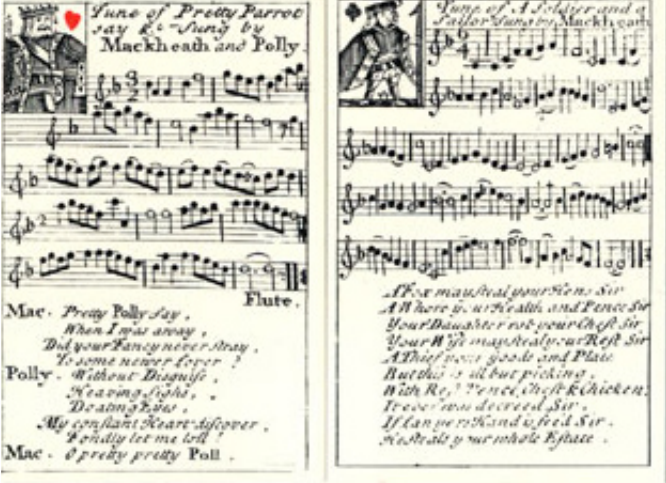 Tune of Pretty Parrot
say &c. Sung by
Mackheath and Polly.
Flute.
Mac. Pretty Polly say,
When I was away,
Did your Fancy never stray,
To some newer Lover?
Polly. Without Disguise,
Heaving Sighs,
Doating Eyes,
My constant Heart discover,
Fondly let me loll!
Mac. O pretty pretty Poll.
Tune of A Soldier and a
Sailor Sung by Mackheath
A Fox may steal your Hens Sir
A Whore your Health and Pence Sir
Your Daughter rob your Chest Sir
Your Wife may steal your Rest Sir
A Thief your Goods and Plate
But this is all but picking,
With Pence, Chest & Chicken;
It ever was decreed Sir,
If Lawyers Hand is feed Sir,
He steals your whole Estate.